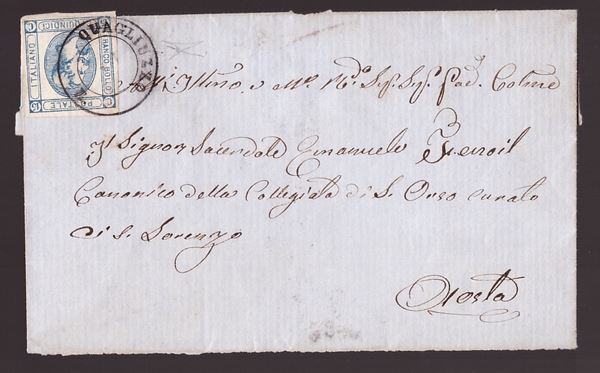 QUAGLIUZZO
FRANCO BOLLO
C. QUINDICI
POSTALE
ITALIANO
C 15
Ill͞mo e M. R.do Sig. Sig. Pad. Colmo
Il Signor Sacerdote Emanuele
Canonico della Collegiata di S. Orso curato
di S. Lorenzo
Aosta